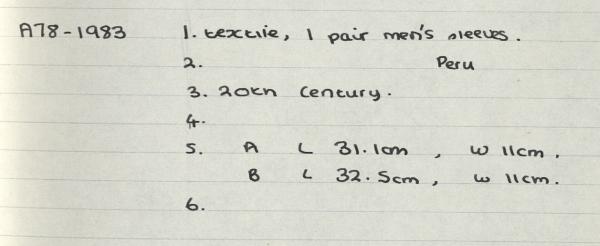 A78-1983 1. textile, 1 pair men's sleeves.
2. Peru
3. 20th Century.
4.
5. A L 31.1cm, W 11cm.
B L 32.5cm, W 11cm.
6.